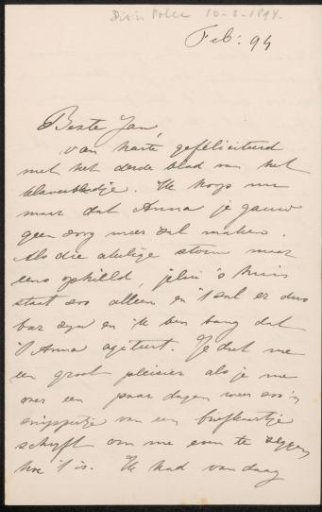 10-2-1894.
Feb: 94
Beste Jan,
van harte gefeliciteerd
met het derde blad van het
klaverblaadje. Ik hoop nu
maar dat Anna je gauw
geen zorg meer zal maken.
Als die akelige storm maar
eens ophield, jelui 's huis
staat zoo alleen en 't zal er dus
bar zijn en ik ben bang dat
't Anna agiteert. Je doet me
een groot pleizier als je me
over een paar dagen weer zoo'n
snippertje van een briefkaartje
schrijft om me even te zeggen
hoe 't is. Ik had vandaag